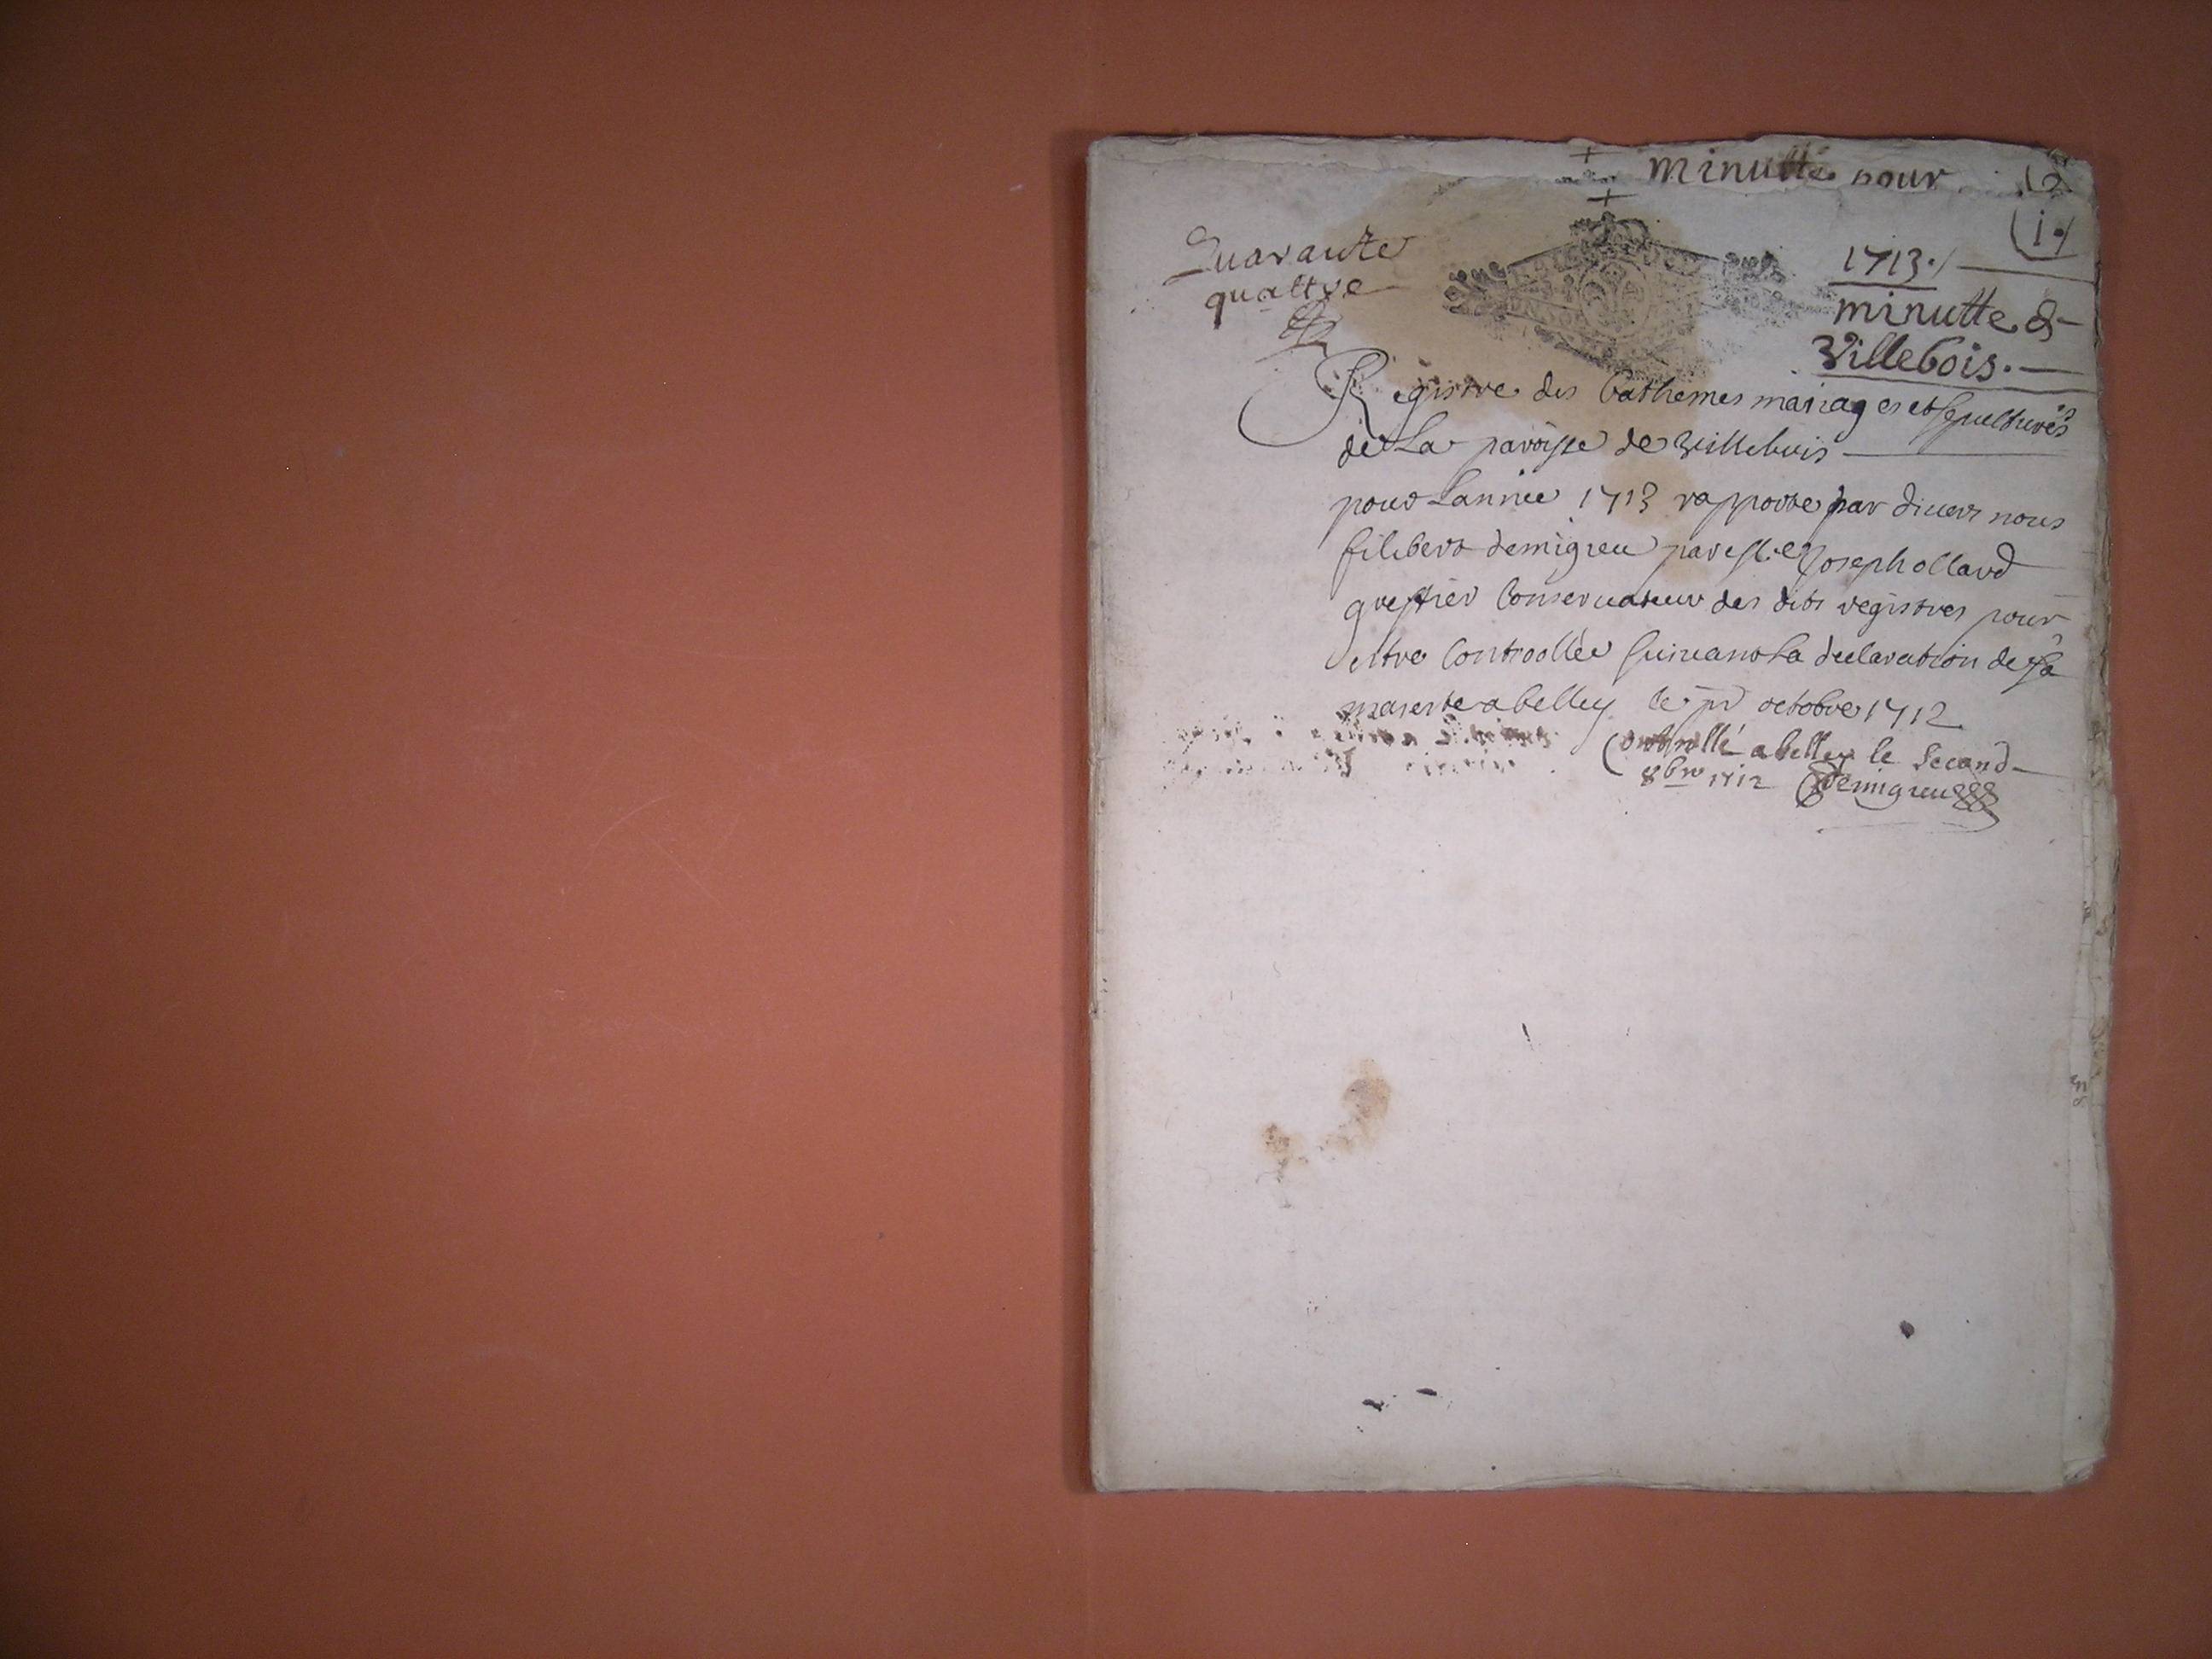 minutte pour
(i.)
Quarante
quattre
1713./
minutte de
Villebois.
Registre des bathemes mariages et sepultures
de La paroisse de Villebois
pour Lannée 1713 rapporté par diuers nous
filibert demigieu par Joseph ollard
greffier Conseruateur des dits registres pour
estre Controollée suiuant La declaration de sa
majeste a belley le pr octobre 1712
Controllé a belley le second
8bre 1712 Demigieu